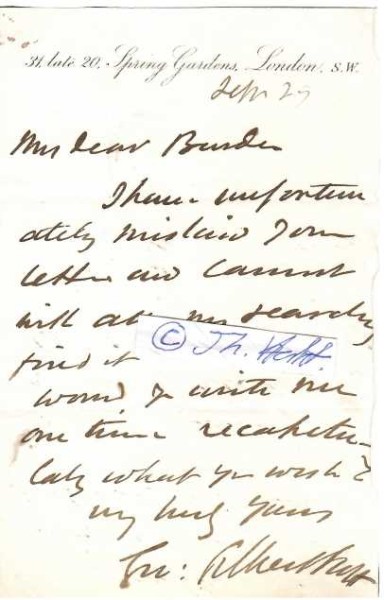 31, late 20, Spring Gardens, London, S.W.
Sep 29
My dear Burder
I have unfortun
ately mislaid your
letter and cannot
with all my searching
find it
© Th. 
would you write me
one line recapitu-
lating what you wish?
my
yours
Geo: Gilbert Scott